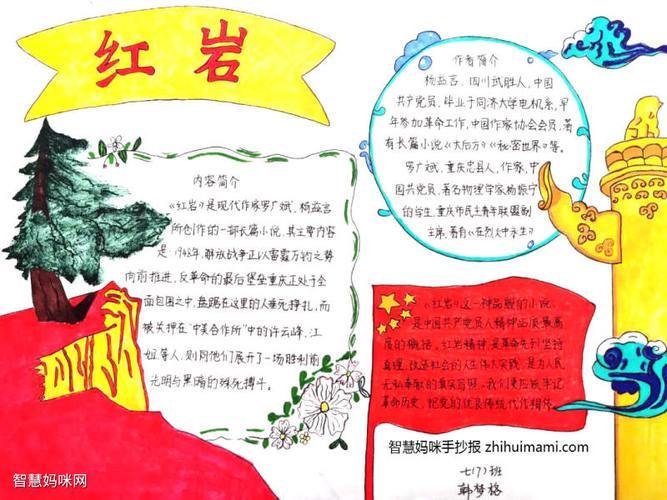 红岩
内容简介
《红岩》是现代作家罗广斌、杨益言
所创作的一部长篇小说,其主要内容
是:1948年,解放战争正以雷霆万钧之势
向前推进,反革命的最后堡垒重庆正处于全
面包围之中,盘踞在这里的人垂死挣扎,而
被关押在“中美合作所”中的许云峰、江
姐等人,则同他们展开了一场胜利前
光明与黑暗的殊死搏斗。
作者简介
杨益言,四川武胜人,中国
共产党员,毕业于同济大学电机系,早
年参加革命工作,中国作家协会会员,著
有长篇小说《大后方》《秘密世界》等。
罗广斌,重庆忠县人,作家,中
国共产党员,著名物理学家杨振宁
的学生,重庆市民主青年联盟副
主席,著有《在烈火中永生》
《红岩》这一种品貌的小说,
是中国共产党员人精神品质最高
度的概括,红岩精神,是革命先烈坚持
真理,改造社会的人生伟大实践,是为人民
无私奉献的真实写照,我们更应该牢记
革命历史,把党的优良传统代代相传
智慧妈咪手抄报 zhihuimami.com
七(7)班
韩梦格
智慧妈咪网